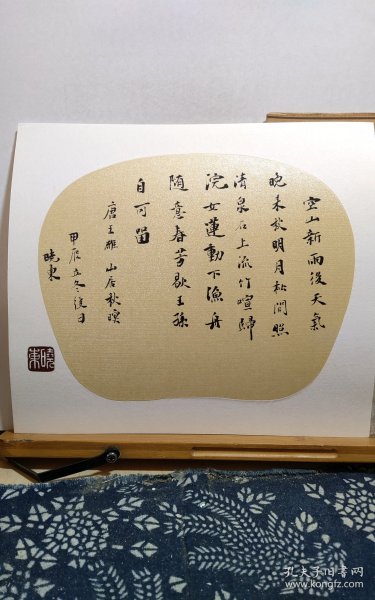 空山新雨後天氣
晚来秋明月松間照
清泉石上流竹喧歸
浣女蓮動下漁舟
随意春芳歇王孫
自可留
唐王維山居秋暝
甲辰立冬後日
曉東
曉東
孔夫子旧书网
www.kongfz.com